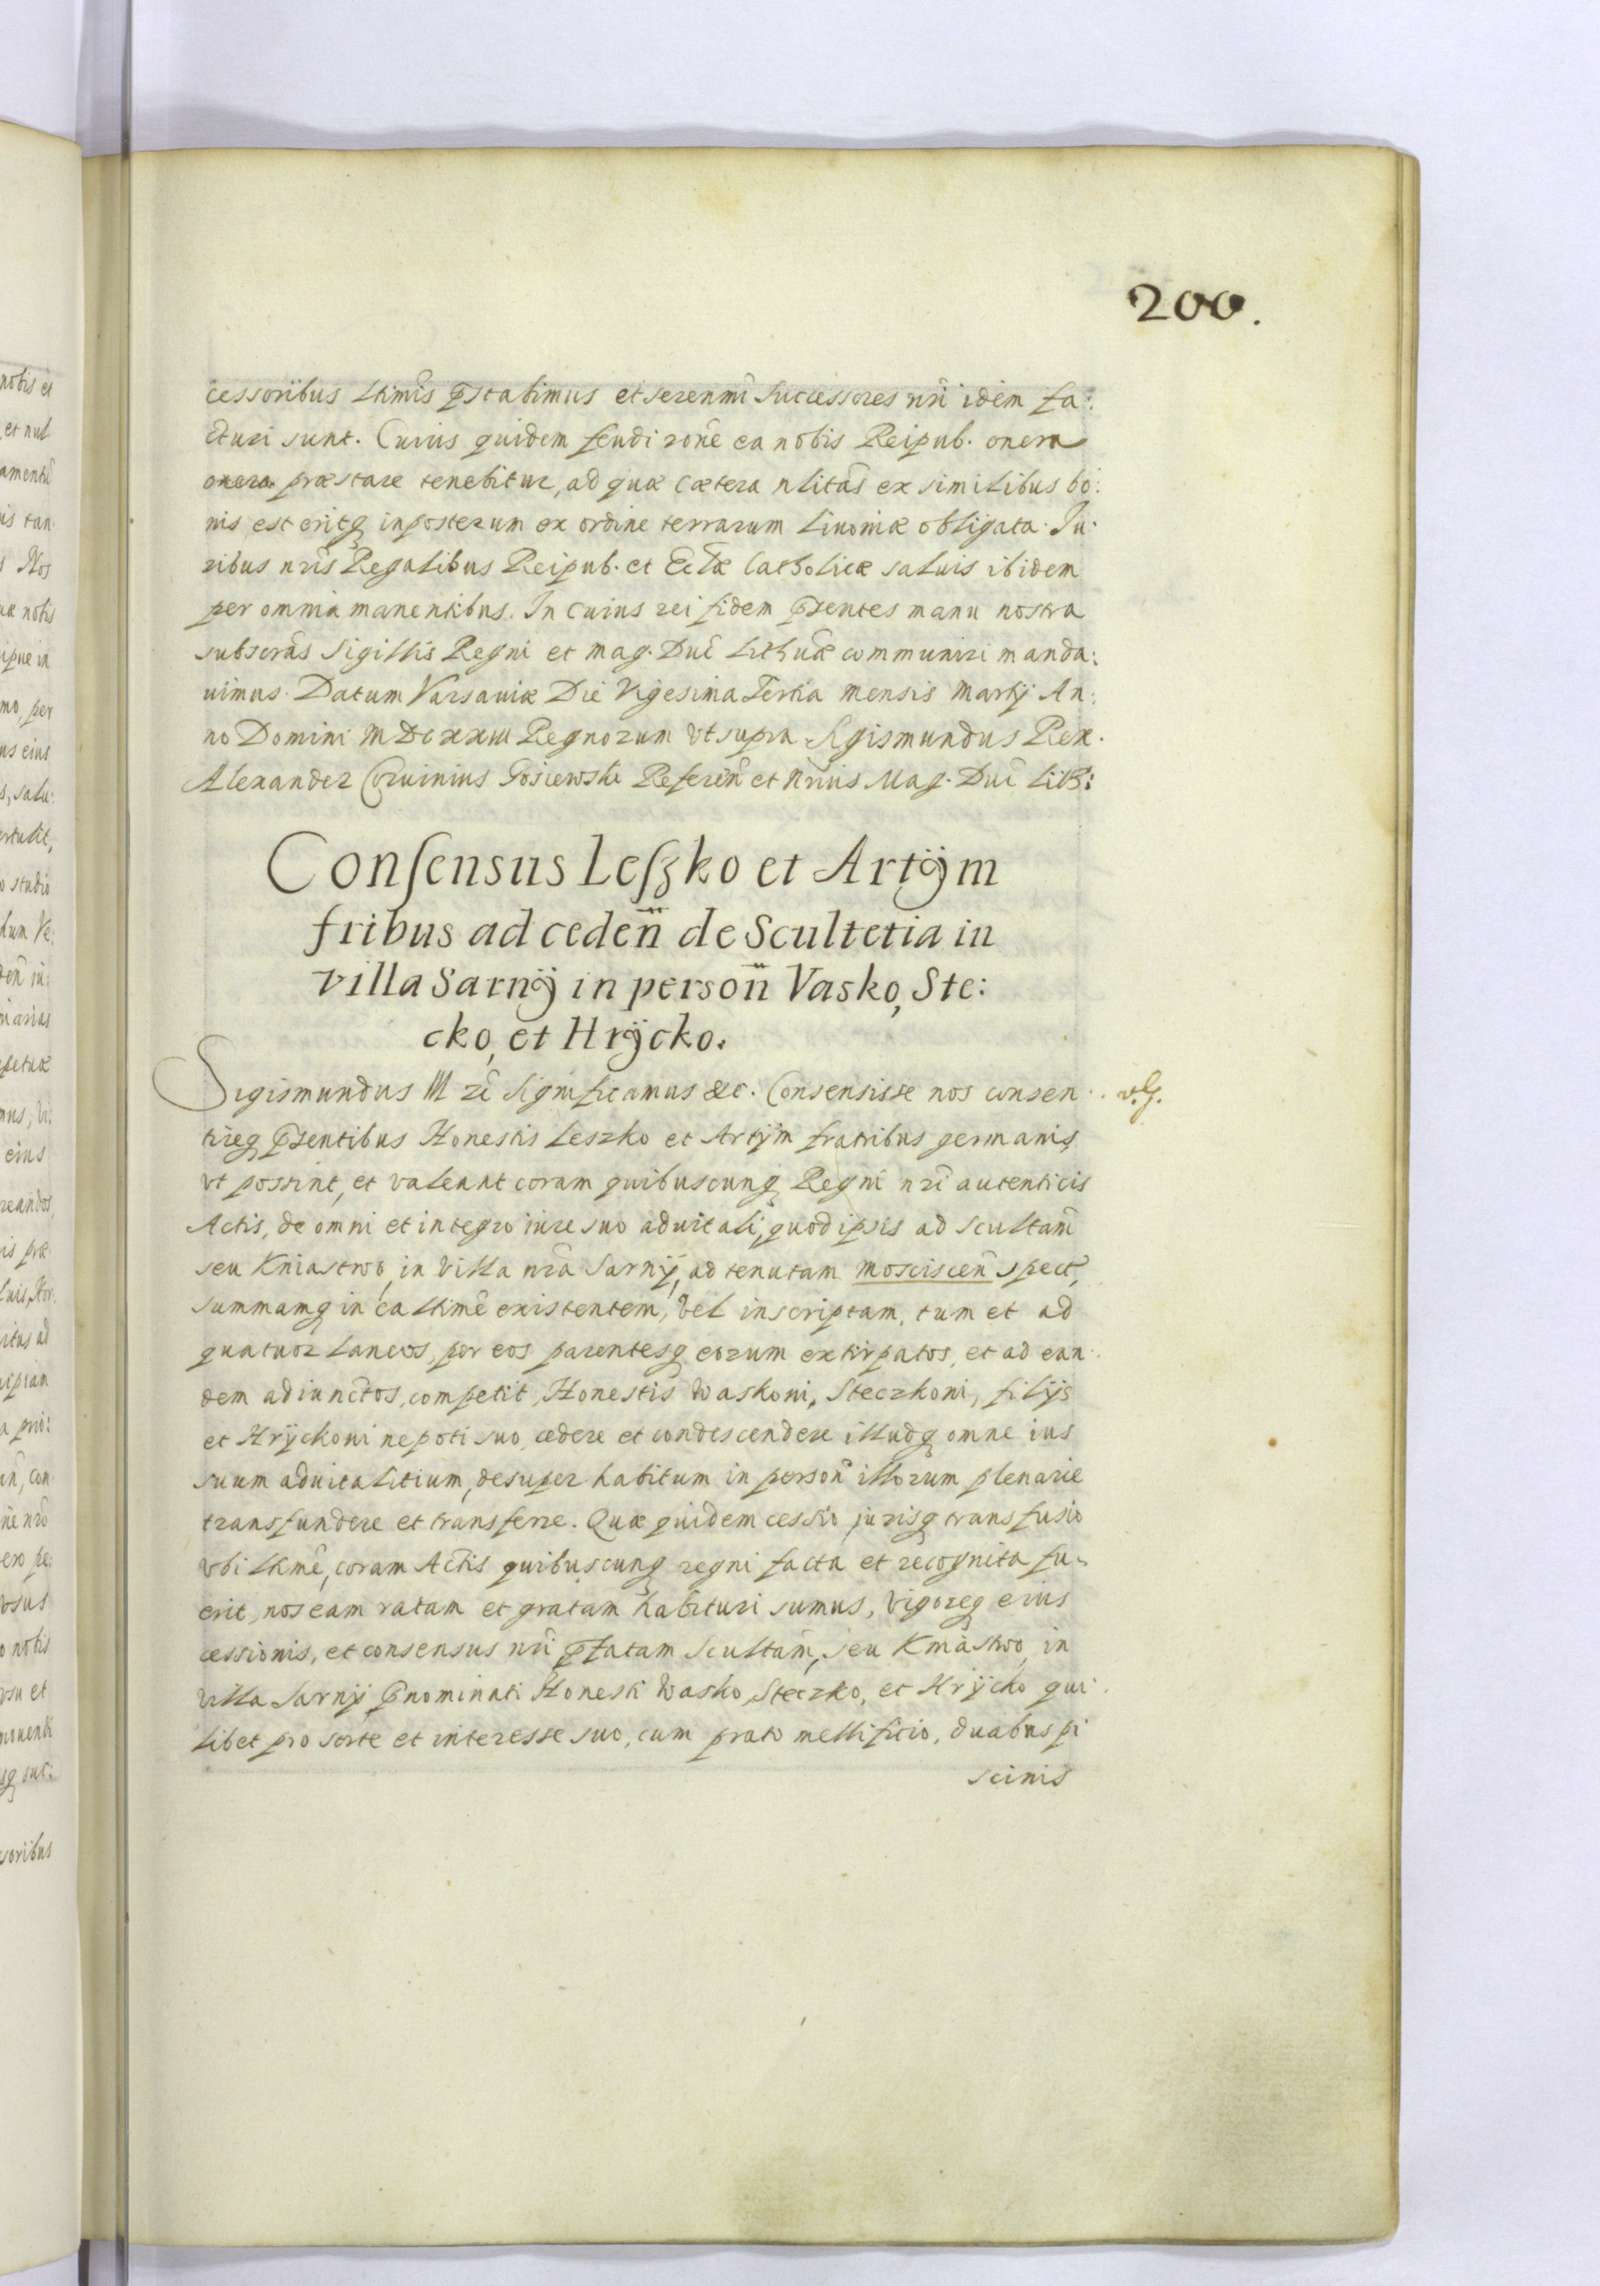 200.
cessoribus ltimis pstabimus et serenmi Successores nri idem fa:
cturi sunt. Cuius quidem feudi rone ea nobis Reipub. onera
onera præstare tenebitur, ad quæ cætera nlitas ex similibus bo:
nis est eritq inposterum ex ordine terrarum Livoniæ obligata. Ju:
ribus nris Regalibus Reipub. et Eclæ Catholicæ saluis ibidem
per omnia manentibus. In cuius rei fidem psentes manu nostra
subscras Sigillis Regni et Mag. Duc Lithuæ communiri manda:
uimus. Datum Varsaviæ Die Vigesima Tertia mensis Martij An:
no Domini MDCXXIII Regnorum vt supra Sigismundus Rex.
Alexander Coruinius Gosiewski Referen et Nrius Mag. Duc Lith:
Consensus Leszko et Artÿm
fribus ad ceden de Scultetia in
villa Sarnÿ in person Vasko, Ste:
cko, et Hrÿcko.
Sigismundus III rc Significamus &c. Consensisse nos consen
tireq psentibus Honestis Leszko et Artÿm fratribus germanis
vt possint, et valeant coram quibuscunq Regni nri autenticis
Actis, de omni et integro iure suo aduitali, quod ipsis ad scultam
seu Kniastwo, in Villa nra Sarnÿ, ad tenutam mosciscen spect,
summamq in ea ltime existentem, vel inscriptam, tum et ad
quatuor laneos, per eos parentesq eorum extirpatos, et ad ean
dem adiunctos, competit, Honestis Waskoni, Steczkoni, filÿs
et Hrÿckoni nepoti suo, cedere et condescendere illudq omne ius
suum aduitalitium, desuper habitum in person illorum plenarie
transfundere et transferre. Quæ quidem cessio jurisq transfusio
vbi ltime, coram Actis quibuscunq regni facta et recognita fu
erit, nos eam ratam et gratam habituri sumus, Vigoreq eius
cessionis, et consensus nri pfatam Scultam, seu Kniastwo, in
villa Sarnÿ pnominati Honesti Wasko, Steczko, et Hrÿcko qui
libet pro sorte et interesse suo, cum prato mellificio, duabus pi
scinis